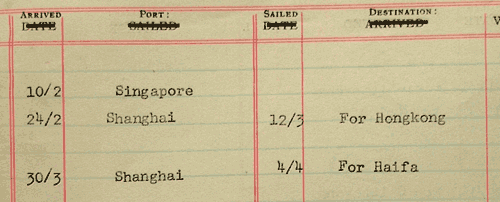 ARRIVED PORT: SAILED DESTINATION:
DATE SAILED DATE ARRIVED
10/2 Singapore
24/2 Shanghai 12/3 For Hongkong
4/4 For Haifa
30/3 Shanghai